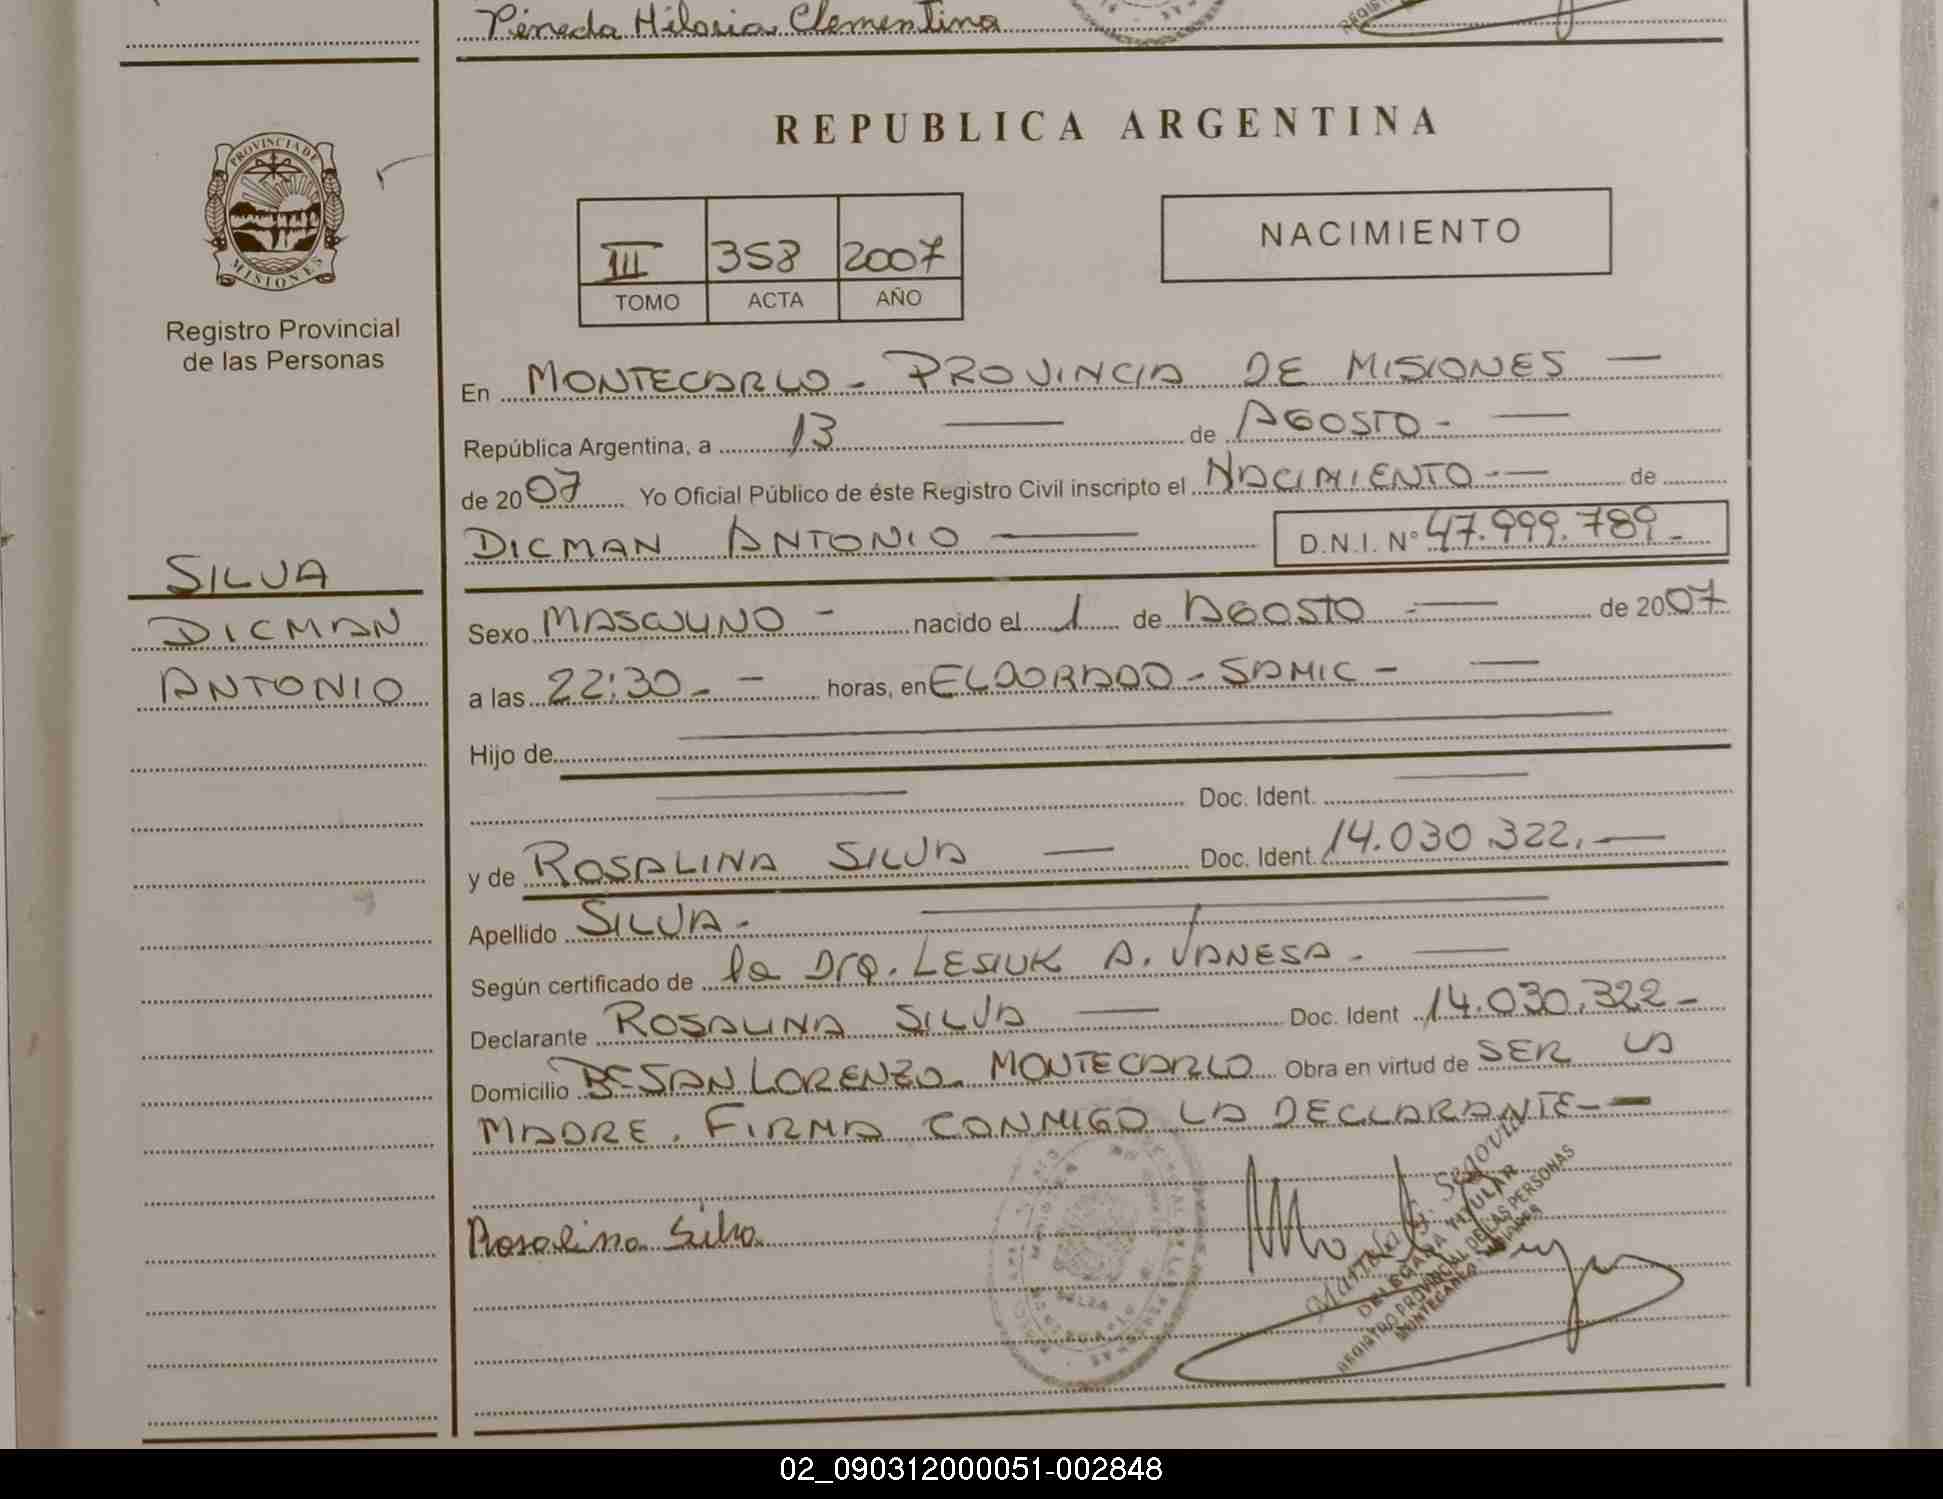 Pereda Hilaria Clementina
REPUBLICA ARGENTINA
PROVINCIA DE
MISIONES
Registro Provincial
de las Personas
III 358 2007
TOMO ACTA AÑO
NACIMIENTO
En MONTECARLO - PROVINCIA DE MISIONES —
República Argentina, a 13 — de AGOSTO - —
de 2007 Yo Oficial Público de éste Registro Civil inscripto el NACIMIENTO - — de
DICMAN ANTONIO — D.N.I. Nº 47.999.789 -
SILVA
DICMAN
ANTONIO
Sexo MASCULINO - nacido el 1 de AGOSTO - — de 2007
a las 22:30 - - horas, en ELDORADO - SAMIC - —
Hijo de —
— Doc. Ident. —
y de ROSALINA SILVA — Doc. Ident. 14.030.322. —
Apellido SILVA - —
Según certificado de la Dra. LESIUK A. VANESA - —
Declarante ROSALINA SILVA — Doc. Ident 14.030.322 -
Domicilio Bº SAN LORENZO - MONTECARLO Obra en virtud de SER LA
MADRE. FIRMA CONMIGO LA DECLARANTE - —
Rosalina Silva
DELEGADA TITULAR
REGISTRO PROVINCIAL DE LAS PERSONAS
MONTECARLO - MISIONES
02_090312000051-002848